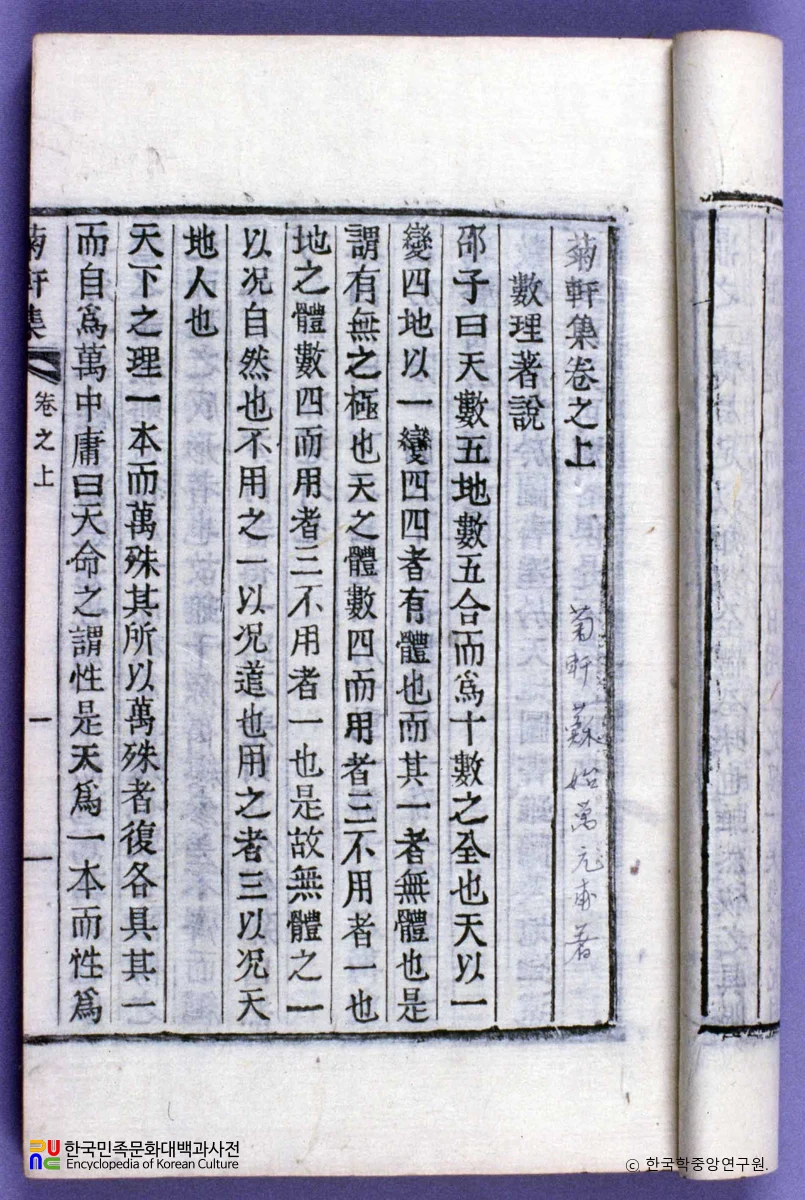 菊軒集卷之上
菊軒 蘇 始萬 元甫 著
數理著說
邵子曰天數五地數五合而爲十數之全也天以一
變四地以一變四四者有體也而其一者無體也是
謂有無之極也天之體數四而用者三不用者一也
地之體數四而用者三不用者一也是故無體之一
以况自然也不用之一以况道也用之者三以况天
地人也
天下之理一本而萬殊其所以萬殊者復各具其一
而自爲萬中庸曰天命之謂性是天爲一本而性爲
菊軒集
卷之上
一
한국민족문화대백과사전
Encyclopedia of Korean Culture
ⓒ 한국학중앙연구원.